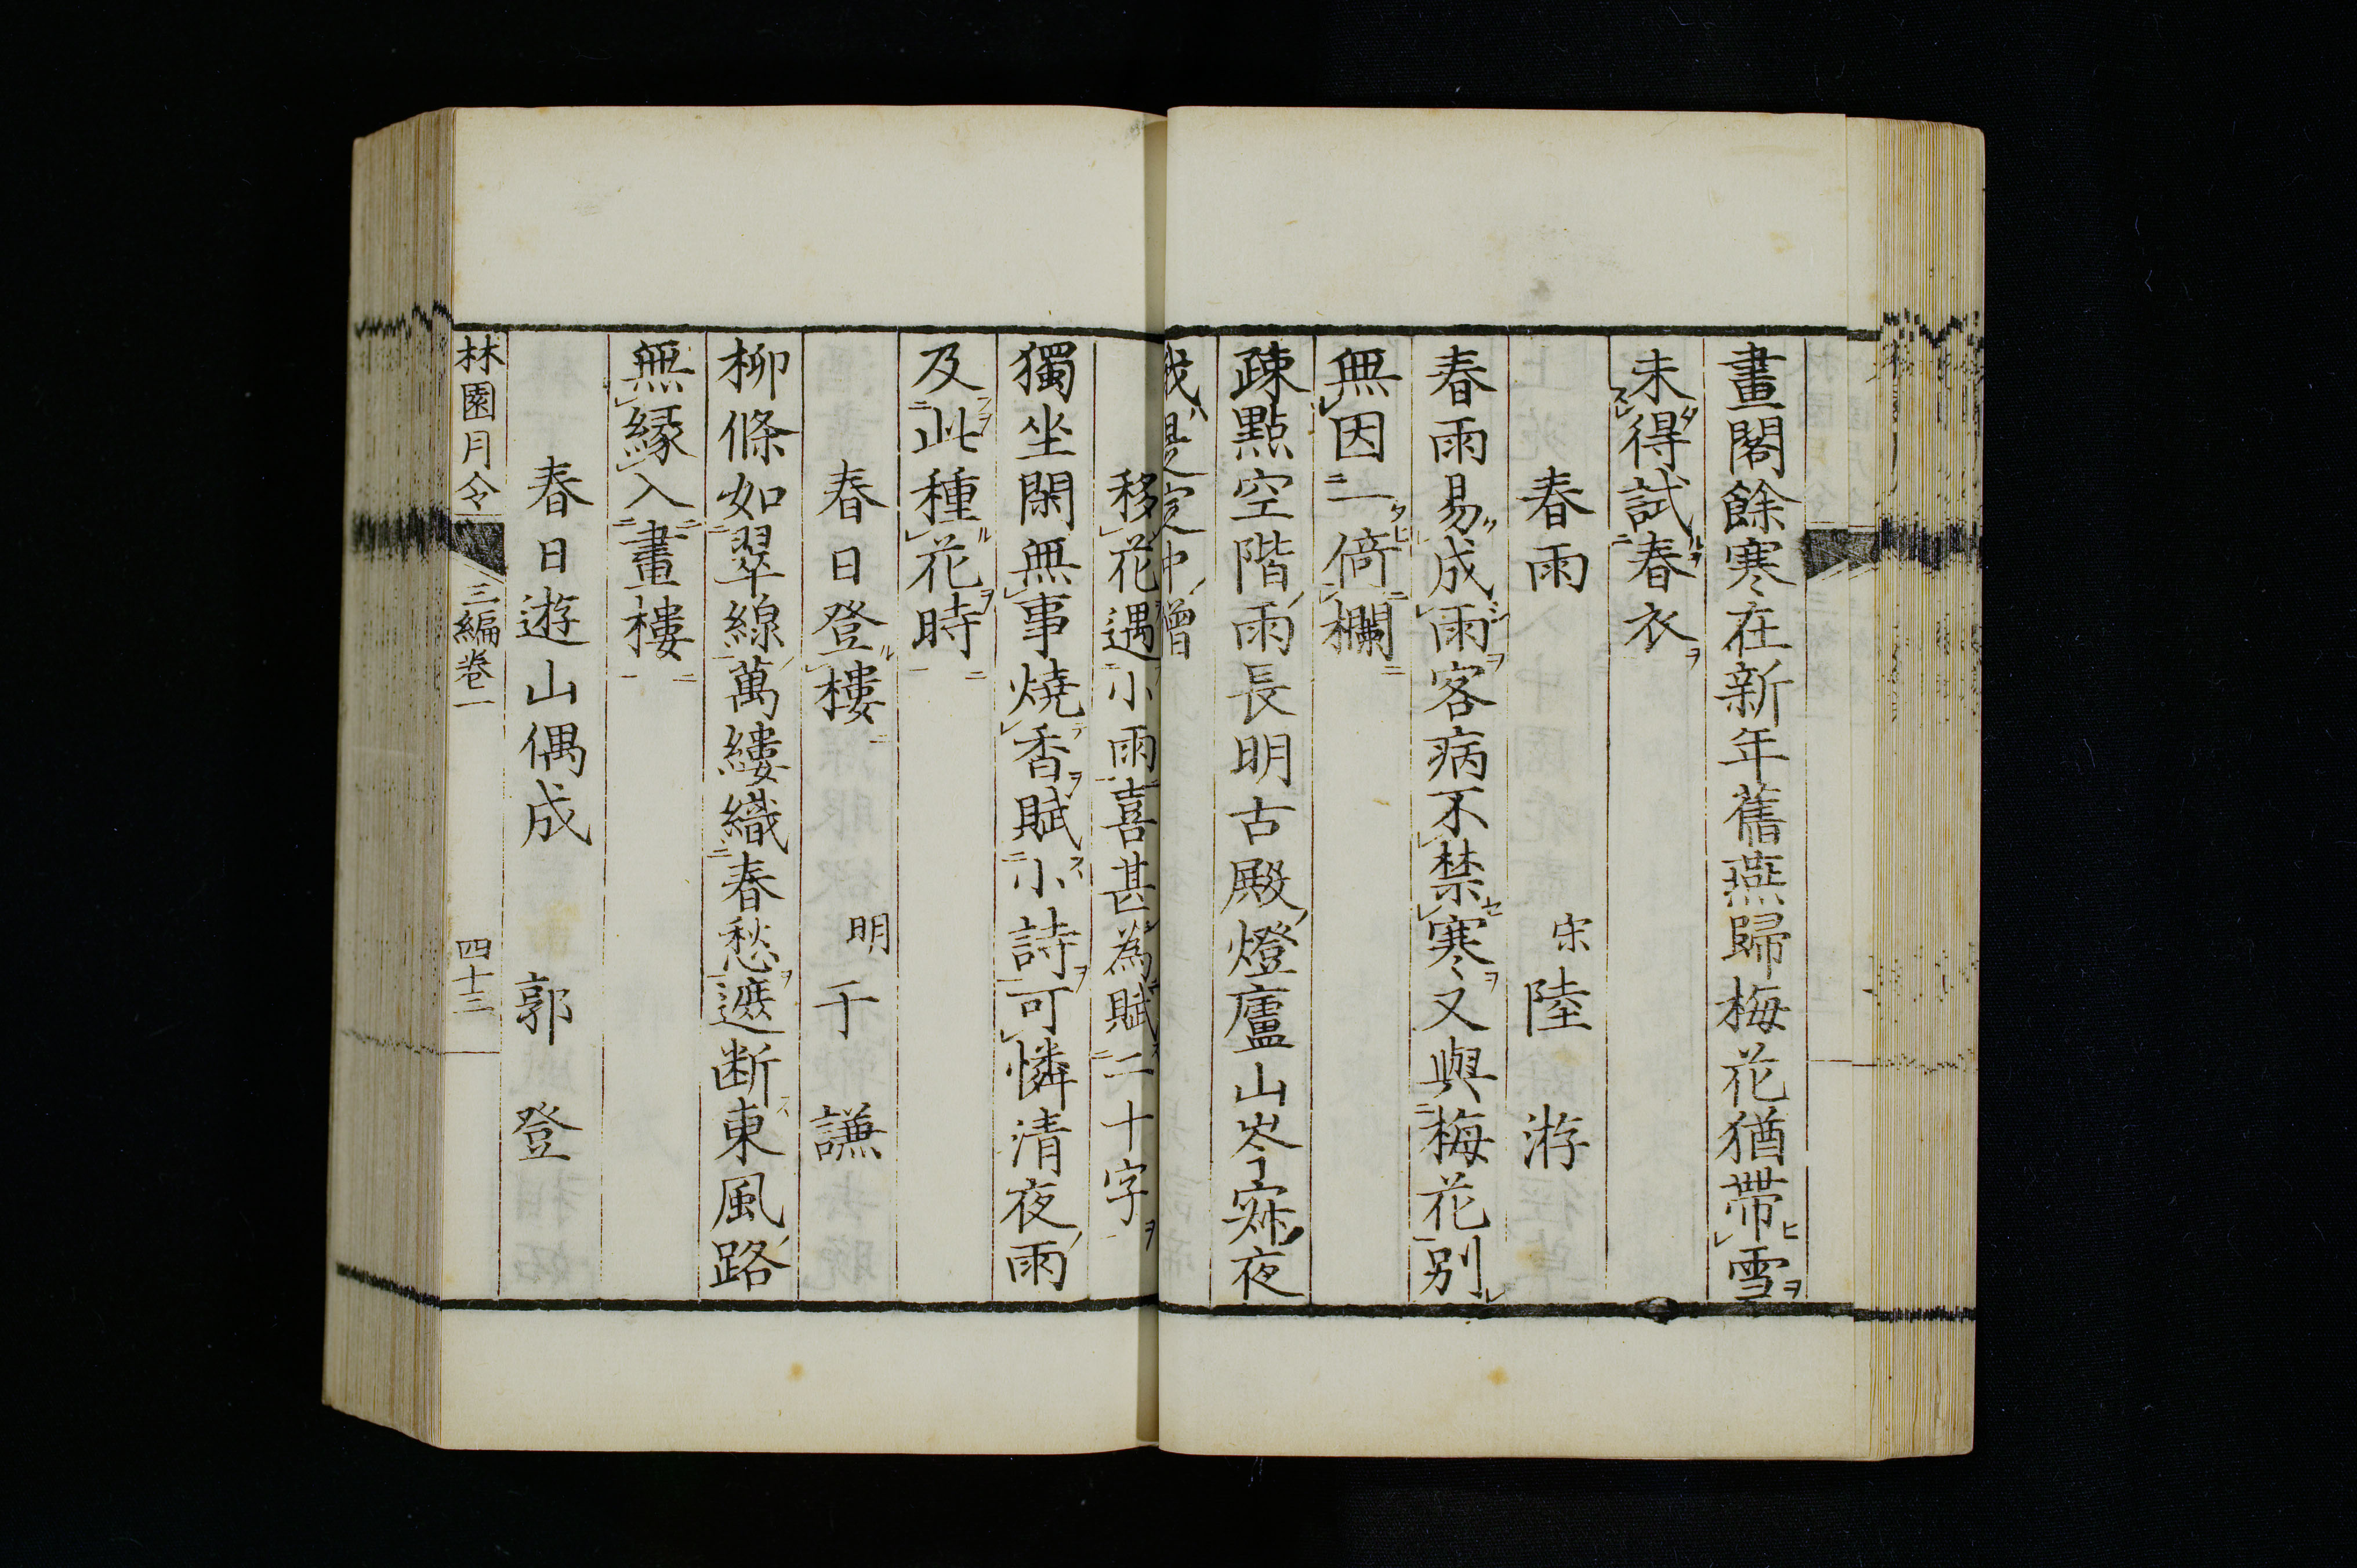 畫閣餘寒在新年舊燕歸梅花猶帶雪
未得試春衣
春雨 宋 陸游
春雨易成雨客病不禁寒又與梅花別
無因一倚欄
疎點空階雨長明古殿燈廬山岑寂夜
我是定中僧
移花遇小雨喜甚為賦二十字
獨坐閑無事燒香賦小詩可憐清夜雨
及此種花時
春日登樓 明 于謙
柳條如翠線萬縷織春愁遮断東風路
無縁入畫樓
春日遊山偶成 郭登
林園月令 三編卷一 四十三